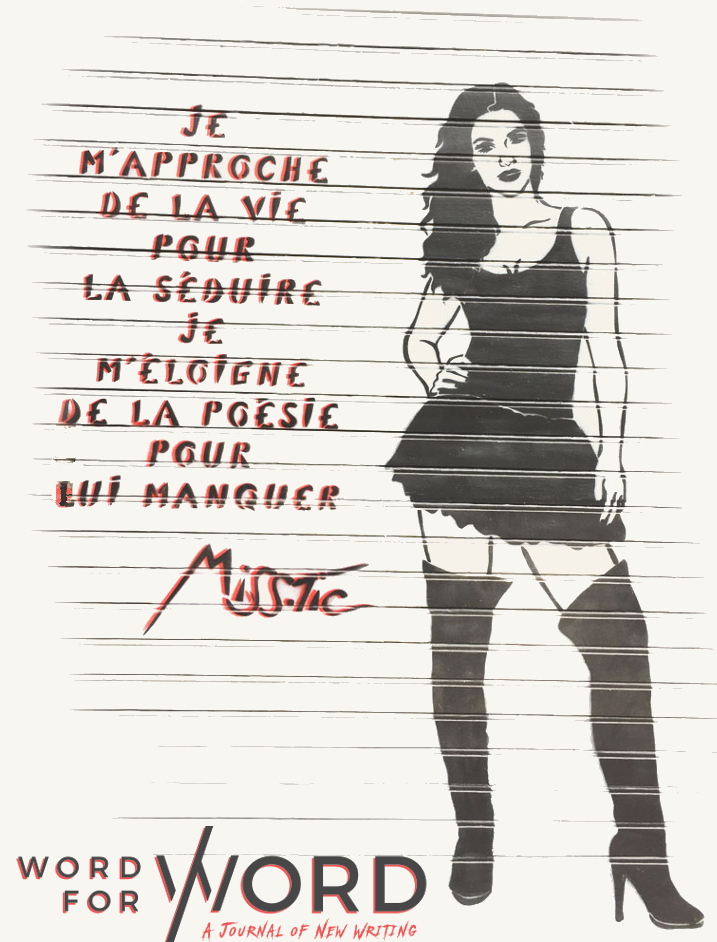 JE
M'APPROCHE
DE LA VIE
POUR
LA SÉDUIRE
JE
M'ÉLOIGNE
DE LA POÉSIE
POUR
LUI MANQUER
MISS.TIC
WORD
FOR
WORD
A JOURNAL OF NEW WRITING